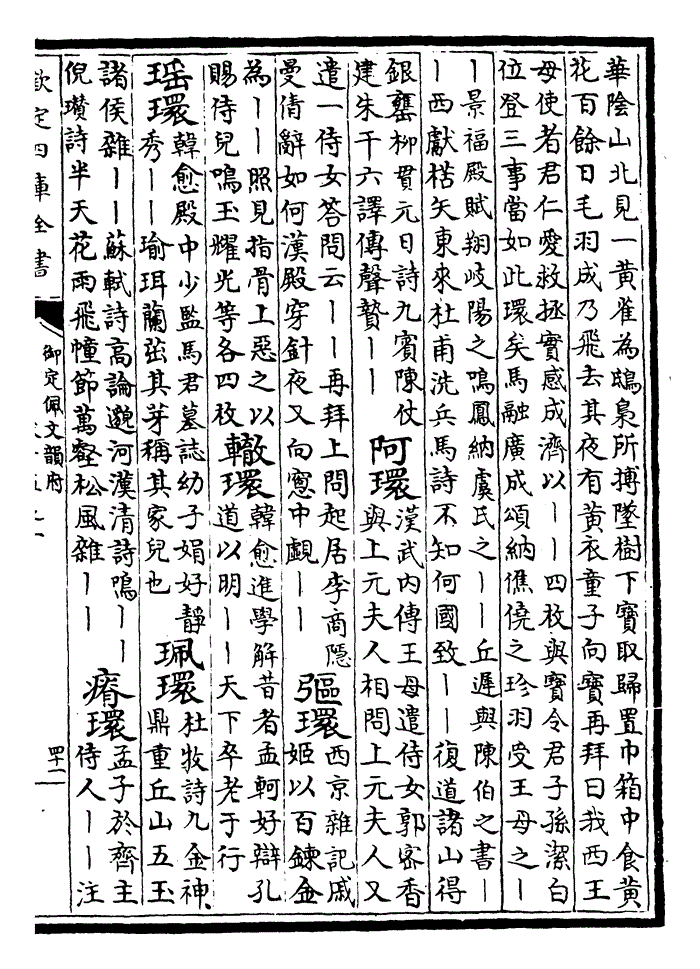 華陰山北見一黄雀為鴟梟所搏墜樹下寶取歸置巾箱中食黄
花百餘日毛羽成乃飛去其夜有黄衣童子向寶再拜曰我西王
母使者君仁愛救拯實感成濟以丨丨四枚與寶令君子孫潔白
位登三事當如此環矣馬融廣成頌納僬僥之珍羽受王母之丨
丨景福殿賦翔岐陽之鳴鳳納虞氏之丨丨丘遲與陳伯之書丨
丨西獻楛矢東來杜甫洗兵馬詩不知何國致丨丨復道諸山得
銀甕柳貫元日詩九賓陳仗
建朱干六譯傳聲贄丨丨
阿環
漢武内傳王母遣侍女郭密香
與上元夫人相問上元夫人又
遣一侍女答問云丨丨再拜上問起居李商隱
曼倩辭如何漢殿穿針夜又向窻中覷丨丨
彄環
西京雜記戚
姬以百鍊金
為丨丨照見指骨上惡之以
賜侍兒鳴玉耀光等各四枚
轍環
韓愈進學解昔者孟軻好辯孔
道以明丨丨天下卒老于行
瑶環
韓愈殿中少監馬君墓誌幼子娟好靜
秀丨丨瑜珥蘭茁其芽稱其家兒也
珮環
杜牧詩九金神
鼎重丘山五玉
諸侯雜丨丨蘇軾詩高論邈河漢清詩嗚丨丨
倪瓚詩半天花雨飛幢節萬壑松風雜丨丨
瘠環
孟子於齊主
侍人丨丨注
欽定四庫全書
御定佩文韻府
四十一